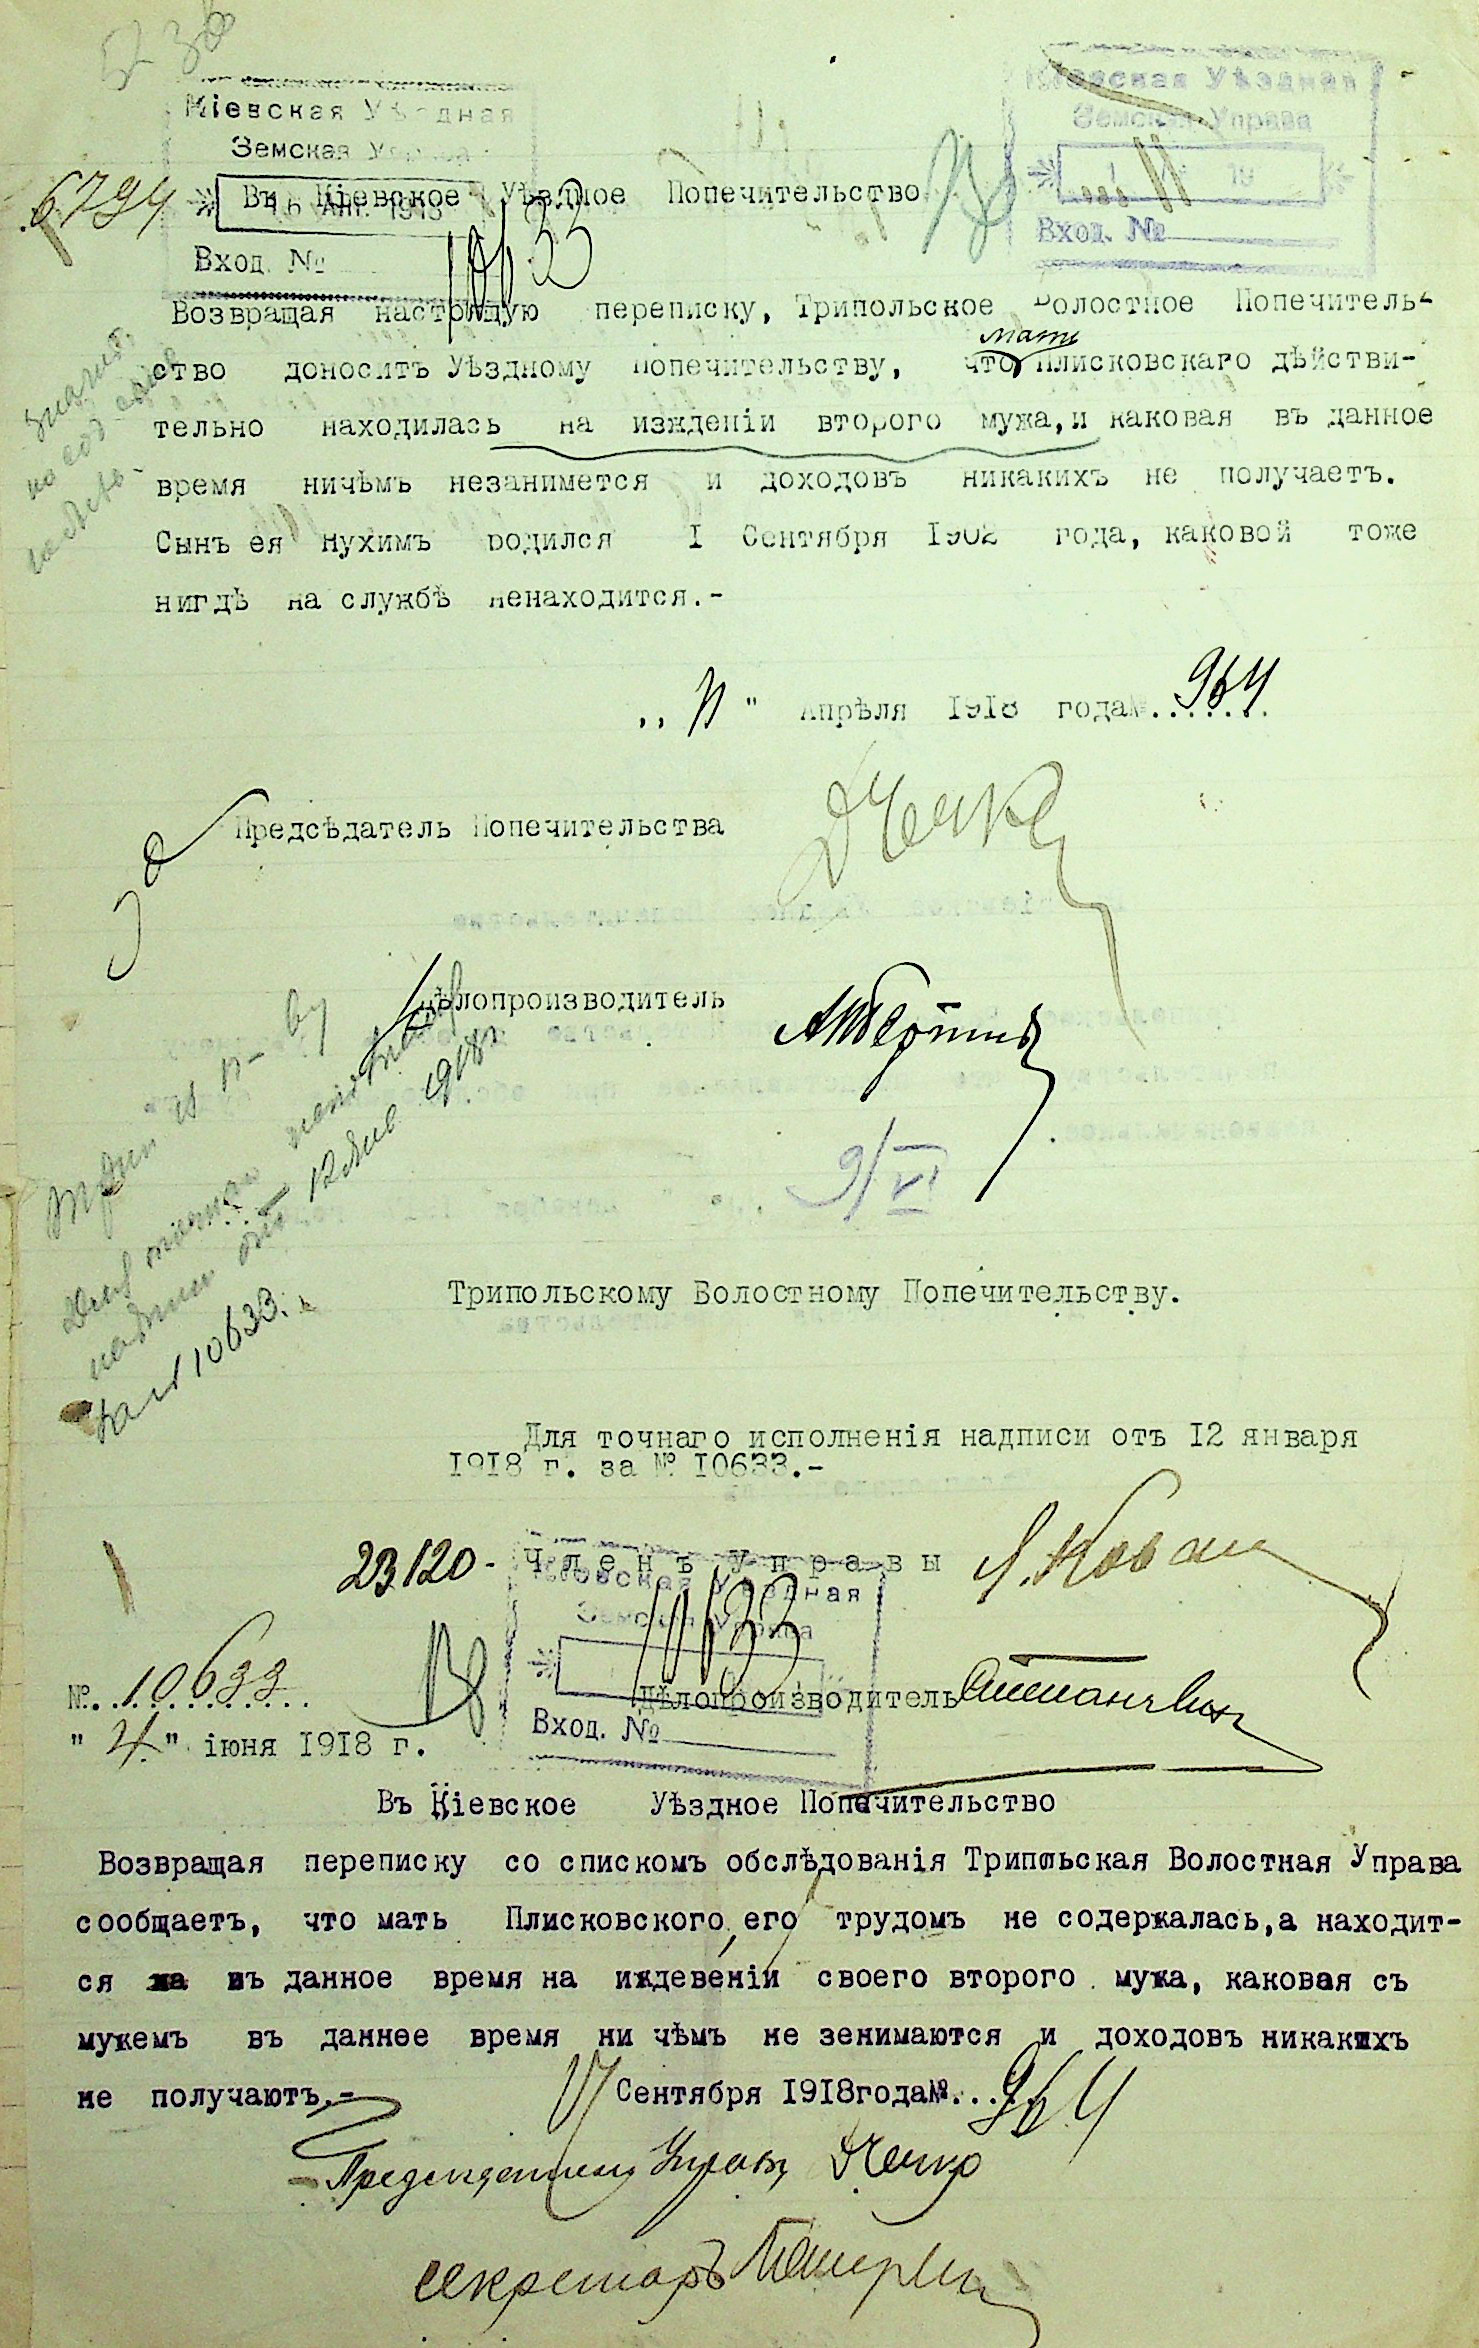 Кіевская Уѣздная
Земская Управа
Вход. №
Кіевская Уѣздная
Земская Управа
19
Вход. №
6794
10633
Въ Кіевское Уѣздное Попечительство
Возвращая настоящую переписку, Трипольское Волостное Попечитель-
мать
ство доноситъ Уѣздному Попечительству, что Плисковскаго дѣйстви-
тельно находилась на изжденіи второго мужа,и каковая въ данное
время ничѣмъ незанимется и доходовъ никакихъ не получаетъ.
Сынъ ея Нухимъ родился I Сентября 1902 года, каковой тоже
нигдѣ на службѣ ненаходится.-
„ 11 " Апрѣля 1918 года№ 964
Предсѣдатель Попечительства
Дѣлопроизводитель
9/VI
отъ 12 Янв 1918 г.
за № 10633.
Трипольскому Волостному Попечительству.
Для точнаго исполненія надписи отъ I2 января
I9I8 г. за № I0633.-
23120- Членъ Управы
Кіевская Уѣздная
Земская Управа
10633
Вход. №
№ 10633
Дѣлопроизводитель
" 4 " іюня I9I8 г.
Въ Кіевское Уѣздное Попечительство
Возвращая переписку со спискомъ обслѣдованія Трипольская Волостная Управа
сообщаетъ, что мать Плисковского его трудомъ не содержалась,а находит-
ся въ данное время на иждевеніи своего второго мужа, каковая съ
мужемъ въ даннее время ни чѣмъ не зенимаются и доходовъ никакихъ
не получаютъ.-
17 Сентября I9I8года№ 964
Предсѣдатель Управы
секретарь